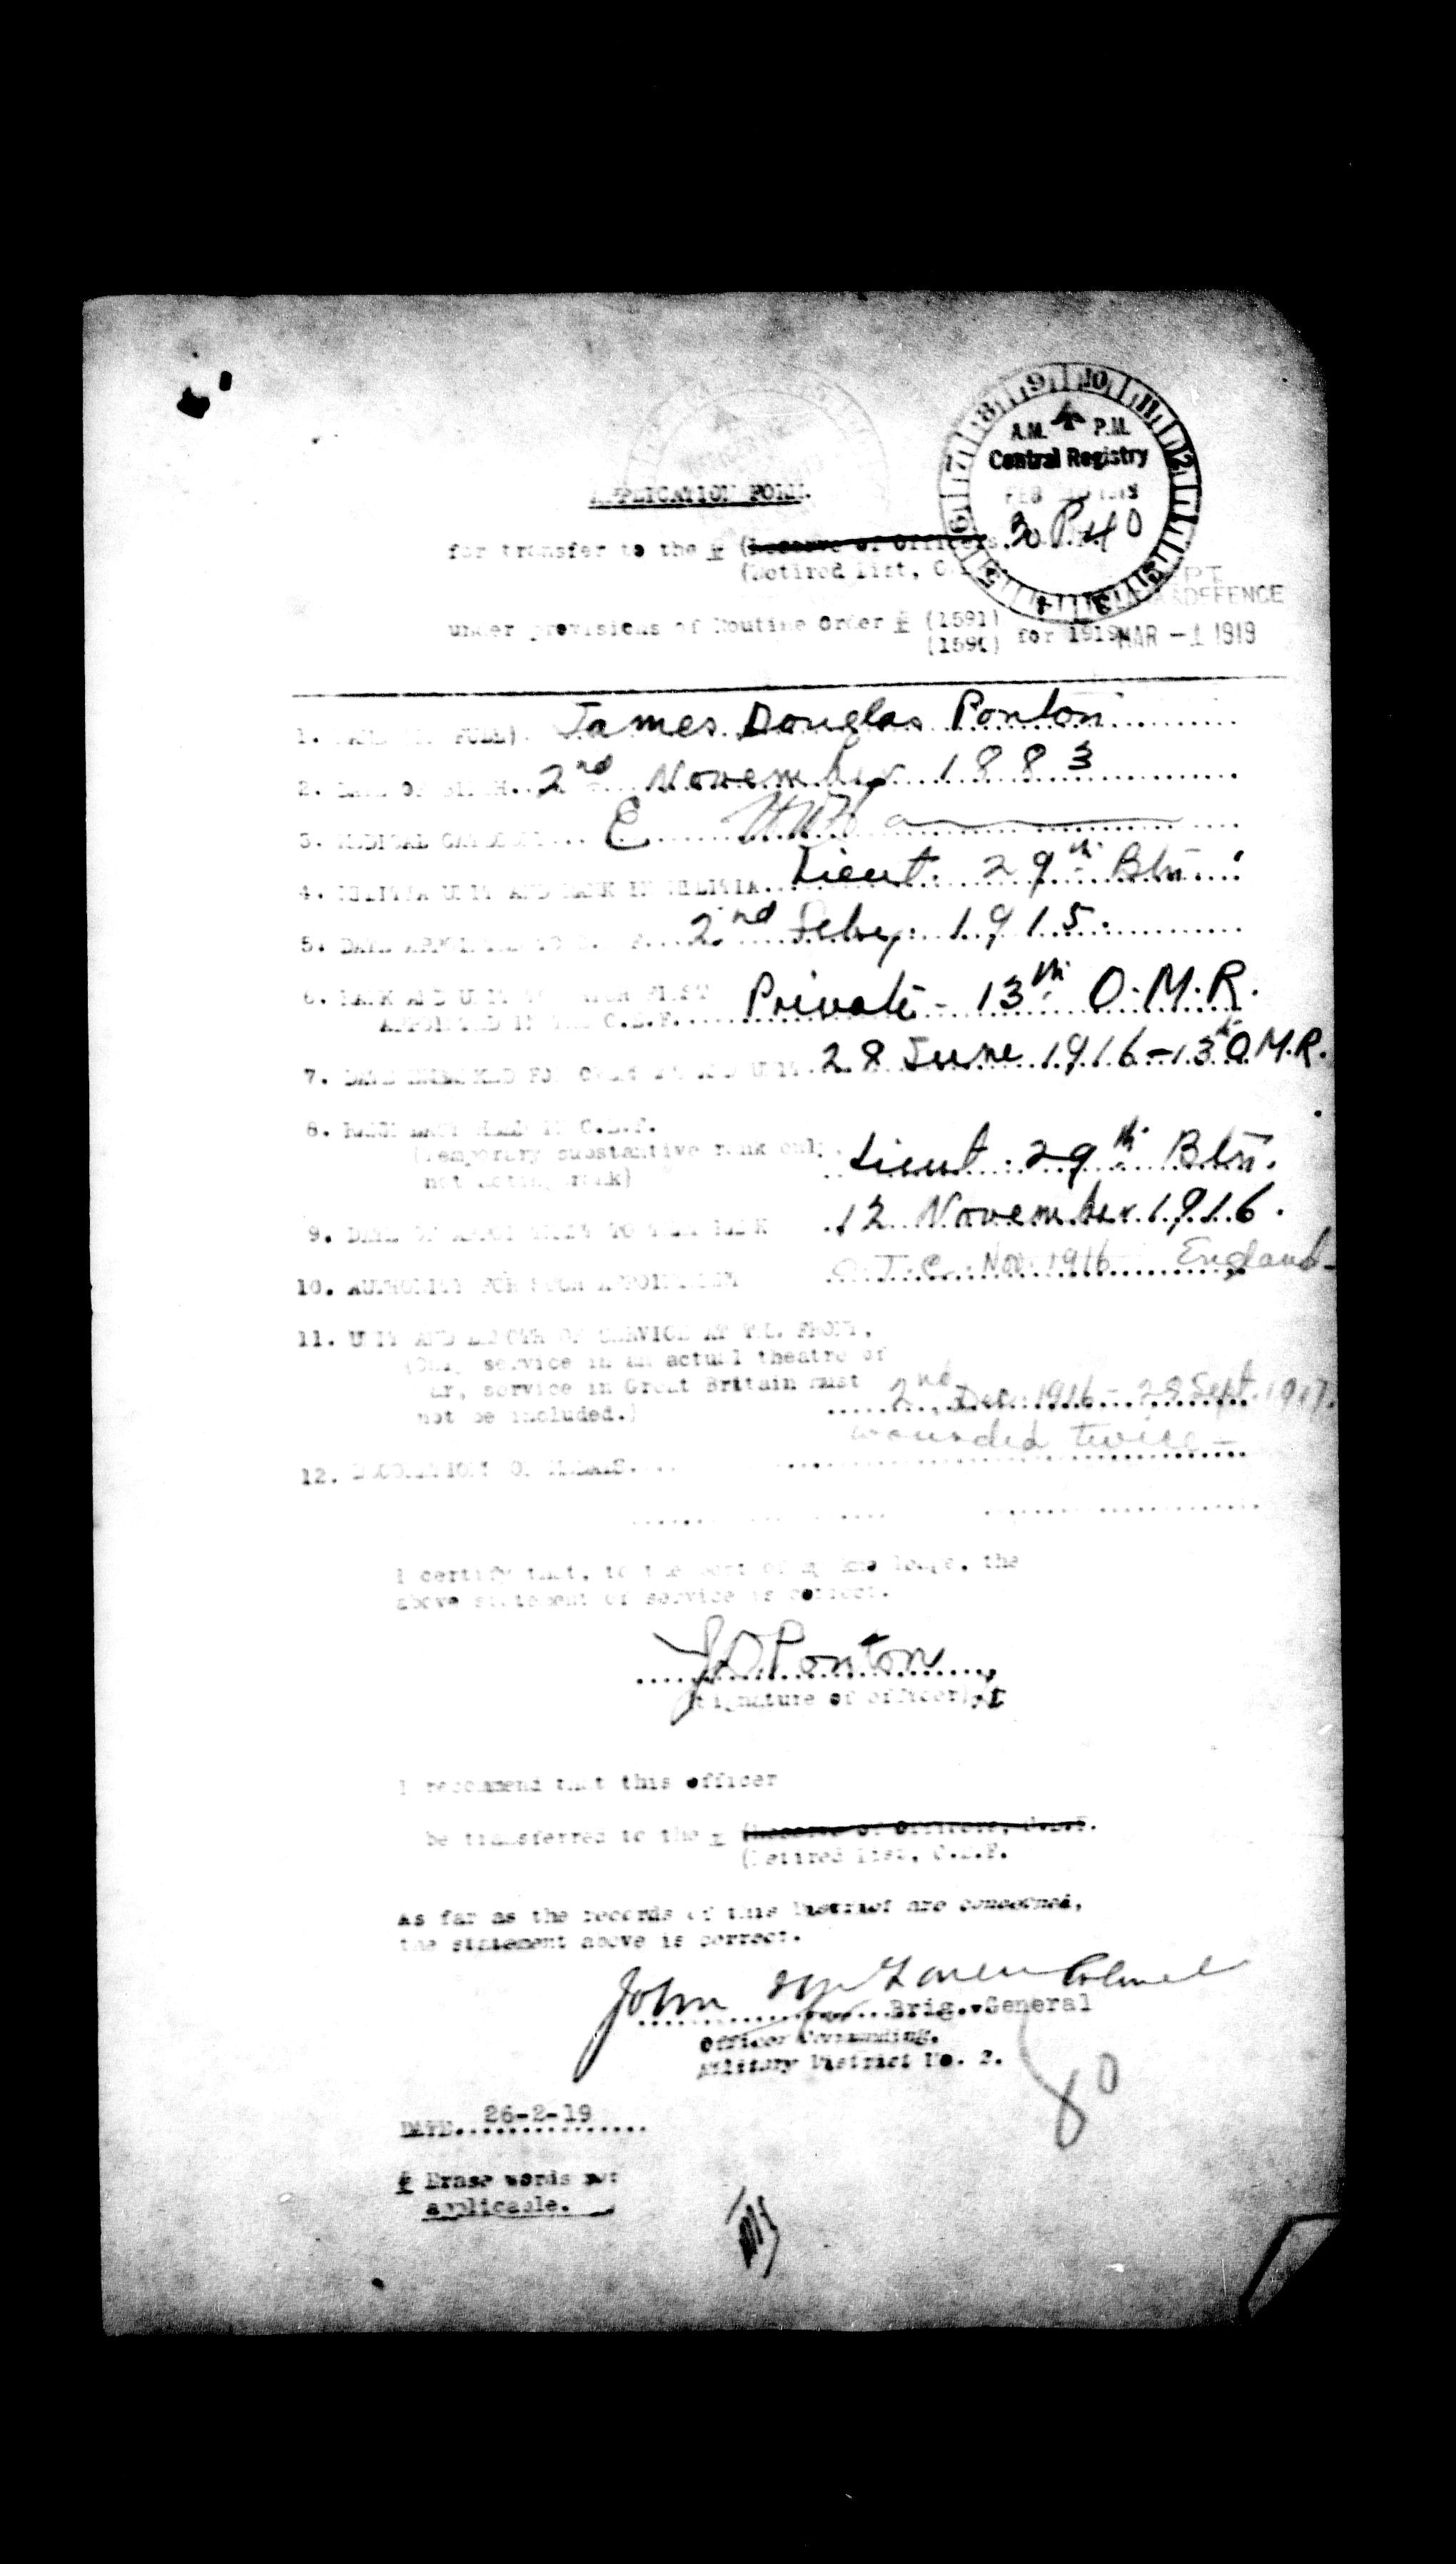 9 10 11 12 1 2 3 4 5 6 7 8
A.M. P.M.
Central Registry
FEB 1919
APPLICATION FORM.
for transfer to the # (Reserve of Officers.
(Retired List, C.
DEFENCE
under provisions of Routine Order # (1591)
(1590) for 1919
MAR -1 1919
1. NAME (IN FULL). James Douglas Ponton
2. DATE OF BIRTH. 2nd November 1883
3. MEDICAL CATEGORY... E
4. MILITIA UNIT AND RANK IN MILITIA. Lieut. 29th Btn.
5. DATE APPOINTED TO C.E.F. 2nd Feby. 1915.
6. RANK AND UNIT TO WHICH FIRST
APPOINTED IN THE C.E.F. Private - 13th O.M.R.
7. DATE EMBARKED FOR OVERSEAS AND UNIT. 28 June 1916 - 13th O.M.R.
8. RANK LAST HELD IN C.E.F.
(Temporary substantive rank only,
not acting rank) Lieut. 29th Btn.
9. DATE OF APPOINTMENT TO SUCH RANK 12 November 1916.
10. AUTHORITY FOR SUCH APPOINTMENT O.T.C. Nov. 1916 England-
11. UNIT AND LENGTH OF SERVICE AT THE FRONT,
(Only service in an actual theatre of
war, service in Great Britain must
not be included.) 2nd Dec. 1916 - 28 Sept. 1917.
wounded twice -
12. DECORATIONS OR MEDALS.
I certify that, to the best of my knowledge, the
above statement of service is correct.
J D Ponton
(Signature of officer)
I recommend that this officer
be transferred to the # (Reserve of Officers, C.E.F.
(Retired List, C.E.F.
As far as the records of this District are concerned,
the statement above is correct.
John Colonel
Brig.-General
Officer Commanding.
Military District No. 2.
80
DATE. 26-2-19
# Erase words not
applicable.